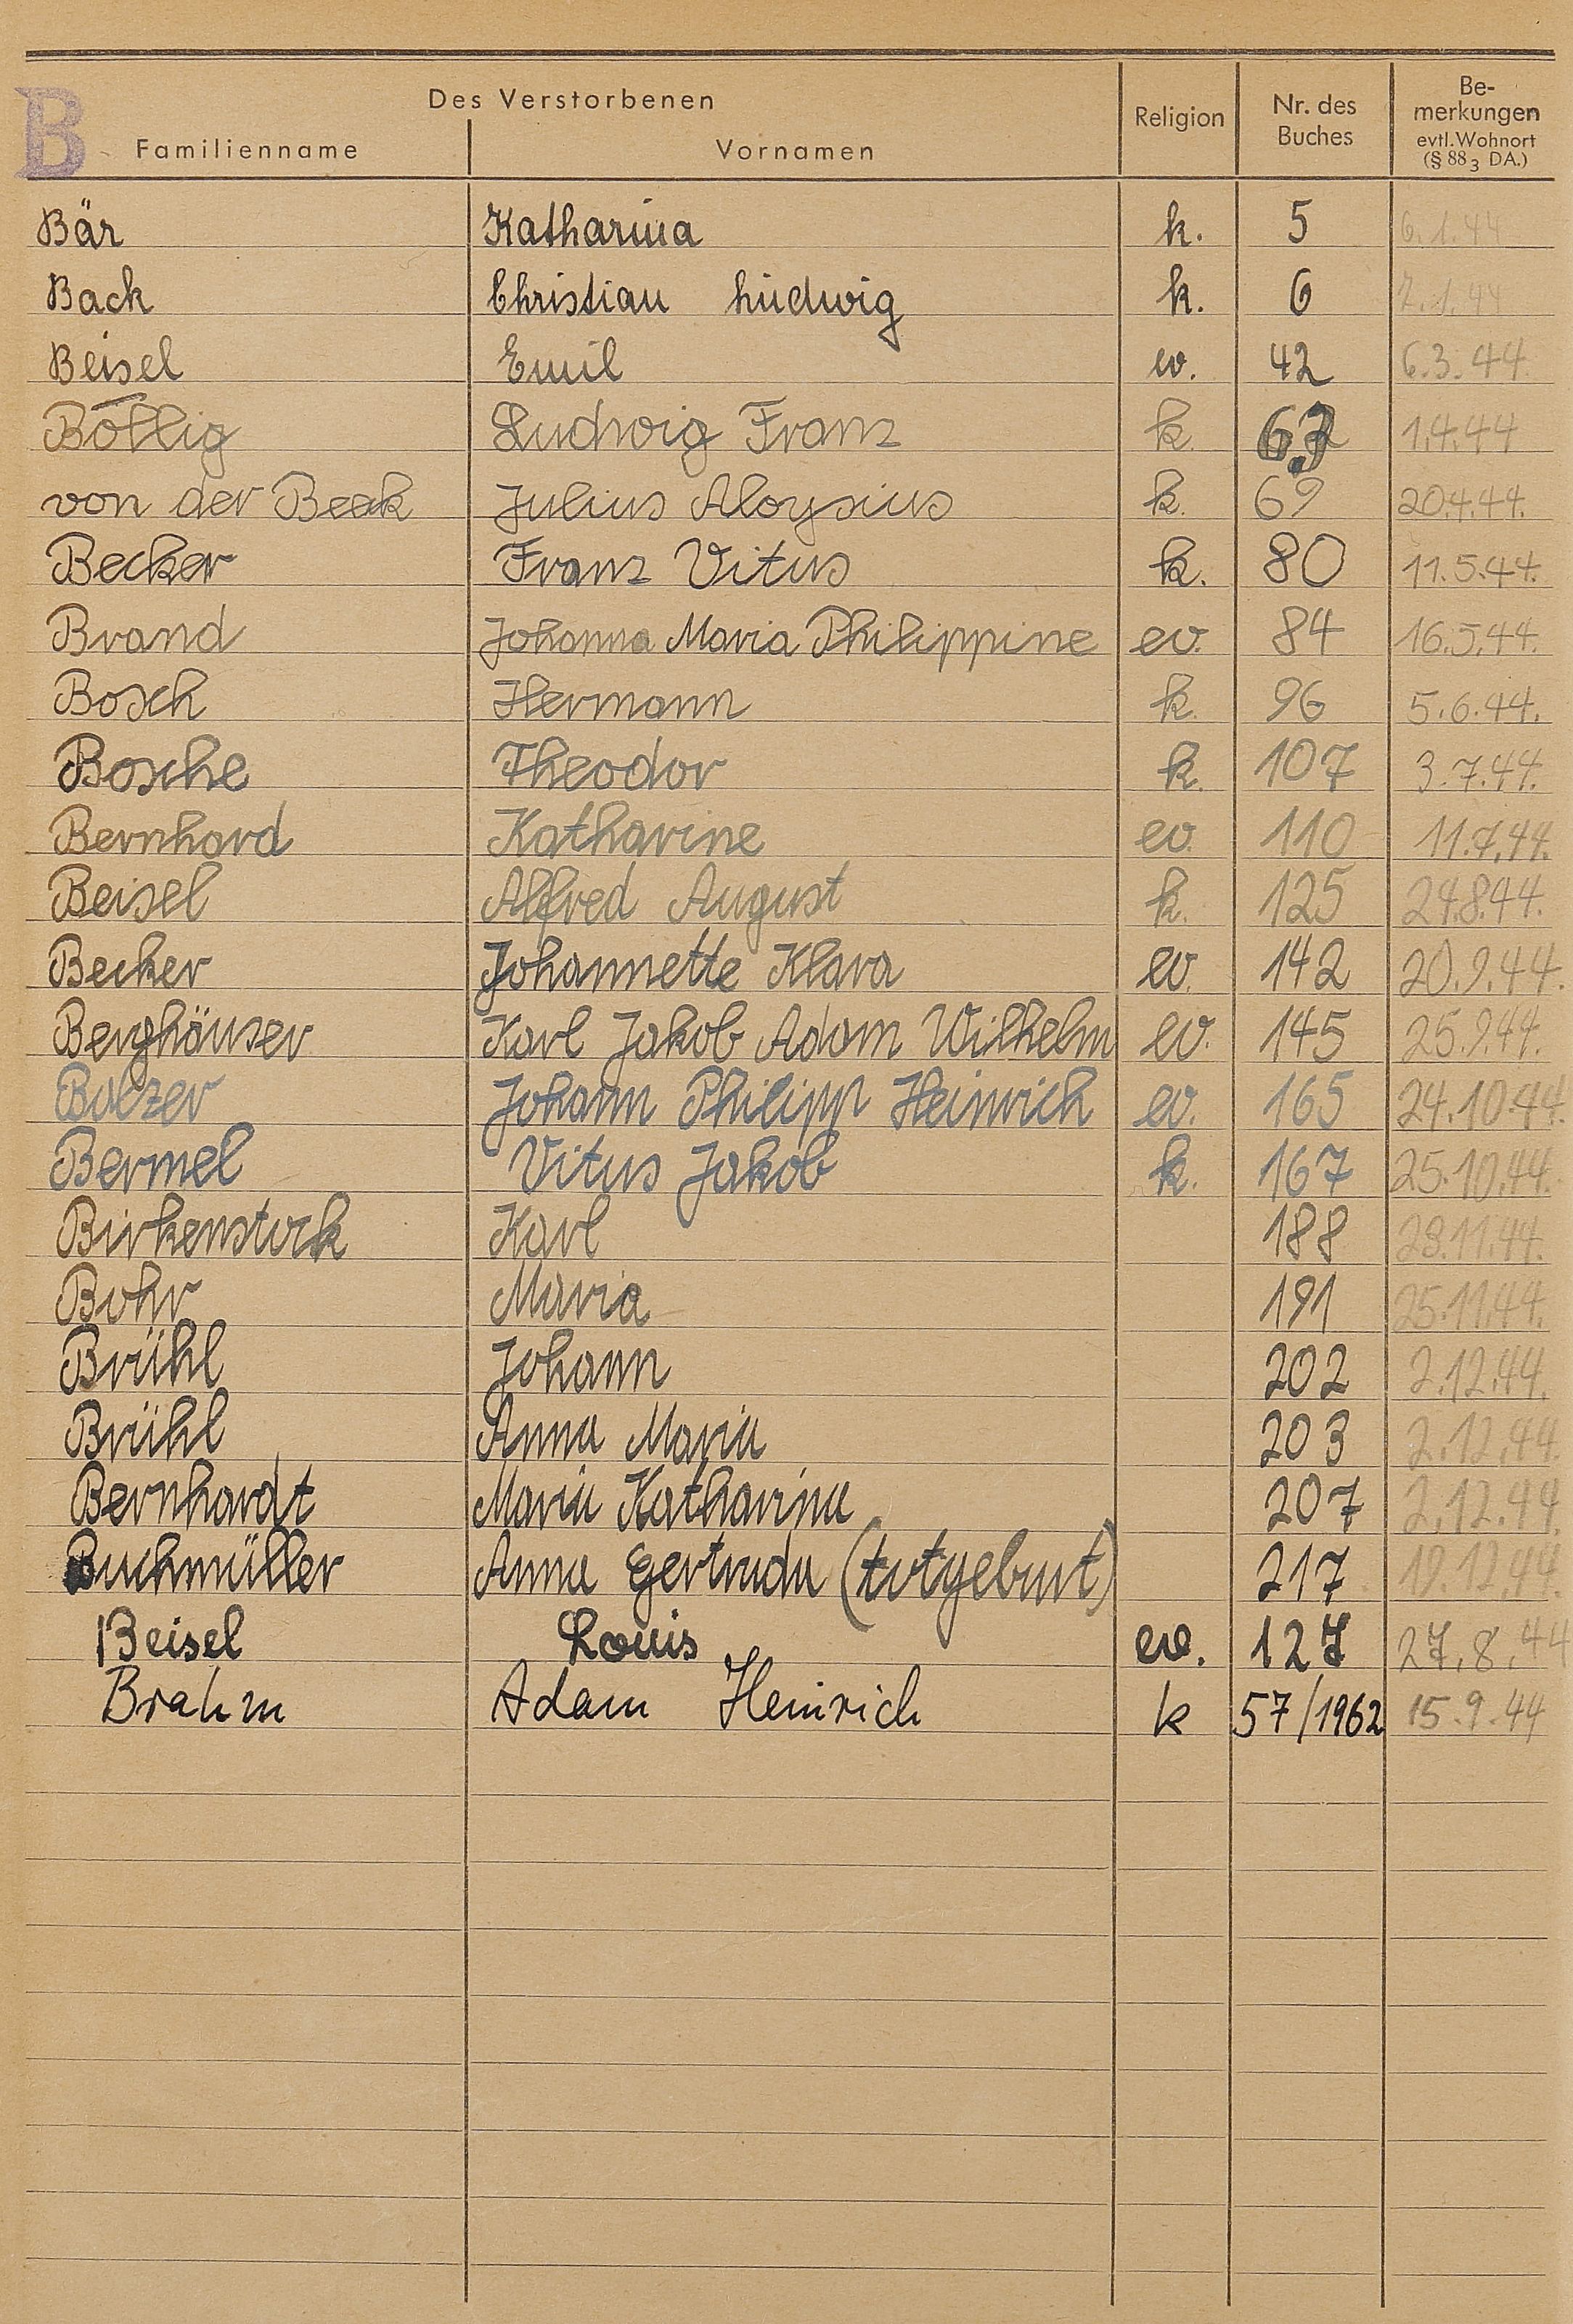 B
Des Verstorbenen
Familienname Vornamen Religion Nr. des Buches Bemerkungen evtl. Wohnort (§ 88 3 DA.)
Bär Katharina k. 5 6.1.44
Back Christian Ludwig k. 6 7.1.44
Beisel Emil ev. 42 6.3.44.
Böllig Ludwig Franz k. 1.4.44
von der Beek Julius Aloysius k. 69 20.4.44.
Becker Franz Vitus k. 80 11.5.44.
Brand Johanna Maria Philippine ev. 84 16.5.44.
Bosch Hermann k. 96 5.6.44.
Bosche Theodor k. 107 3.7.44.
Bernhard Katharine ev. 110 11.7.44.
Beisel Alfred August k. 125 24.8.44.
Becker Johannette Klara ev. 142 20.9.44.
Berghäuser Karl Jakob Adam Wilhelm ev. 145 25.9.44.
Balzer Johann Philipp Heinrich ev. 165 24.10.44.
Bermel Vitus Jakob k. 167 25.10.44.
Birkenstock Karl 188 23.11.44.
Bohr Maria 191 25.11.44.
Brühl Johann 202 2.12.44.
Brühl Anna Maria 203 2.12.44.
Bernhardt Maria Katharina 207 2.12.44.
Buchmüller Anna Gertruda (totgeburt) 217 19.12.44.
Beisel Louis ev. 127 27.8.44
Brahm Adam Heinrich k 57/1962 15.9.44